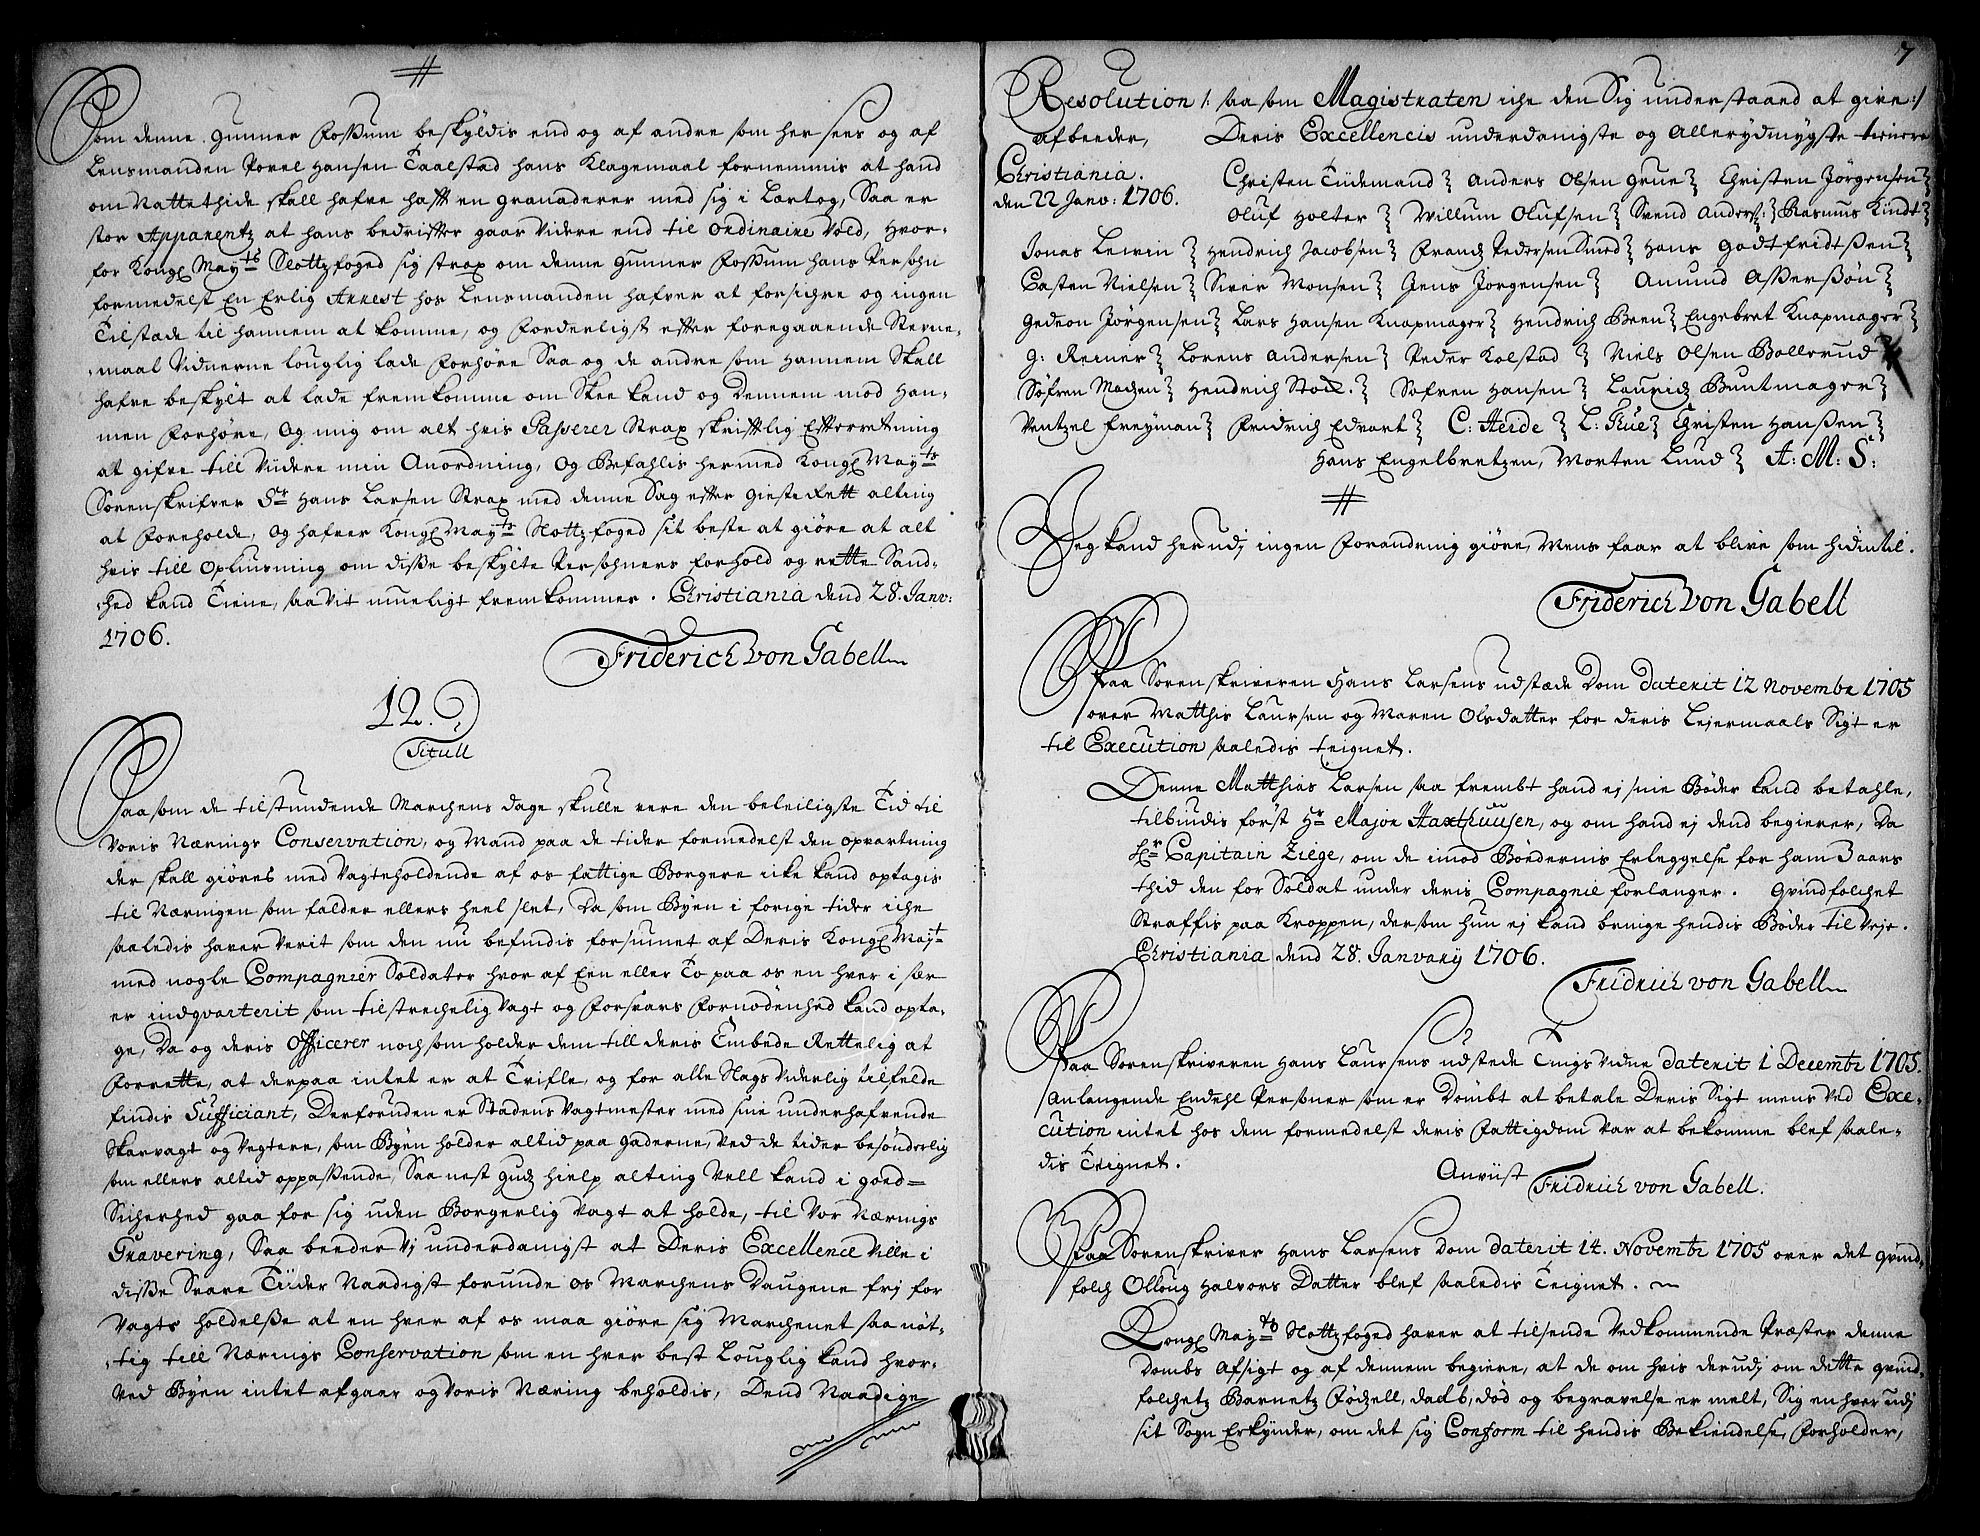 #
Som denne Gunner Fossum beskyldis end og af andre som her sees og af
Lensmanden Povel Hansen Taalstad hans Klagemaal fornemmis at hand
om Nattethide skall hafve hafft en granaderer med sig i Lærtog, Saa er
stor Apparentz at hans bedriffter gaar videre end til ordinaire Vold, Hvor-
for Kongl May:ts Slottzfoged sig strax om denne Gunner Fossum hans Persohn
formedelst En Erlig Arrest hos Lensmanden hafver at forsichre og ingen
Tilstæde til hannem at komme, og Forderligst effter foregaaende Stevne-
maal Vidnerne louglig lade Forhöre Saa og de andre som Hannem Skall
hafve beskylt at lade fremkomme om Skee kand og Dennem mod Han-
men Forhöre, Og mig om alt hvis Passerer Strax skrifftlig Effterretning
at gifve till Viidere min Anordning, Og Befahlis hermed Kongl May:ts
Sorenskrifver Sr Hans Larsen Strax med denne Sag effter Gieste Rett alting
at Foreholde, Og hafver Kongl May:ts Slottzfoged sit beste at giöre at alt
hvis till Opliusning om disse beskylte Persohners forhold og rette Sand-
hed kand Tiene, saavit mueligt fremkommer. Christiania dend 28. Janv:
1706.
Friderich von Gabell
12.
Titull
Saasom de tilstundende Marchens dage skulle vere den beleiligste Tid til
Voris Nærings Conservation, og Mand paa de tider formedelst den opvartning
der skall giöres med Vagteholdende af os fattige Borgere icke kand optagis
til Næringen som falder ellers heel slet, Da som Byen i forige tider iche
saaledis haver verit som den nu befindis forsiunet af Deris Kongl May:t
med nogle Compagnier Soldater hvor af Een eller To paa os en hver i sær
er indqvarterit som tilstrechelig Vagt og Forsvars Fornödenhed kand opta-
ge, Da og deris Officerer nochsom holder dem till deris Embede Rettelig at
Forrette, at derpaa intet er at Tvifle, og for alle Slags Viderlig tilfelde
findis Sufficiant, Derforuden er Stadens Vagtmester med sine underhafvende
Skarvagt og Vegtere, som Byen holder altid paa gaderne, Ved de tider besönderlig
som ellers altid oppassende, Saa nest Gudz hielp alting Vell kand i goed-
Sicherhed gaa for sig uden Borgerlig Vagt at holde, til Vor Nærings
Gravering, Saa beeder Vj underdanigst at Deris Excellence Ville i
disse Svare Tiider Naadigst forunde os Marchens Daugene frj for
Vagts holdelsse at en hver af os maa giöre sig Marchenet saa nöt-
tig till Nærings Conservation som en hver best Louglig kand hvor-
ved Byen intet afgaar og Voris Næring beholdis, Dend Naadige
7
Resolution /: saasom Magistraten iche den Sig understaaed at give :/
afbeeder, Deris Excellencis underdanigste og Allerydmygste tienere
Christiania. Christen Tüdemand } Anders Olsen Grue } Christen Jörgensen }
den 22 Janv: 1706. Oluf Holter } Willum Olufsen } Svend Anders: } Rasmus Kindt }
Jonas Lewin } Hendrich Jacobsen } Frandz Pedersen Smed } Hans Godtfridtssen }
Casten Nielsen } Siver Monsen } Jens Jörgensen } Amund Assersöön }
Gedeon Jörgensen } Lars Hansen Knapmager } Hendrich Been } Engebret Knapmager }
G: Reiner } Lorens Andersen } Peder Kolstad } Niels Olsen Bollerud }
Söfren Madzen } Hendrich Stoed. } Sofren Hansen } Lauridz Buntmager }
Ventzel Freyman } Fridrich Edvart } C: Herde } L: Grue } Christen Hanssen }
Hans Engelbretzen, Morten Lund } A: M: S:
#
Jeg kand herudj ingen Forandring giöre, Mens faar at blive som hidintil.
Friderich von Gabell
Paa Sorenskriveren Hans Larsens udstæde Dom Daterit 12 Novembr 1705
over Matthis Laursen og Maren Olsdatter for deris Lejermaals Sigt er
til Execution saaledis teignet.
Denne Matthias Larsen saa frembt hand ej sine Böder kand betahle,
tilbiudis först Hr Major Haxthuusen, og om hand ej dend begierer, Da
Hr Capitain Ziege, om de imod Bödernis Erleggelse for ham 3 aars
thid den for Soldat under deris Compagnie forlanger. Qvindfolchet
Straffis paa Kroppen, dersom hun ej kand bringe hendis Böder til Veje.
Christiania dend 28. January 1706.
Fridrich von Gabell
Paa Sorenskriveren Hans Laursens udstede Tings Vidne daterit 1 Decembr 1705.
Anlangende Endehl Persöner som er Dömbt at betale Deris Sigt mens Ved Exe-
cution intet hos dem formedelst deris Fattigdom Var at bekomme blef saale-
dis Teignet.
Anviist Fridrich von Gabell.
Paa Sorenskriver Hans Larsens Dom daterit 14. Novembr 1705 over det Qvind-
folch Olloug Halvors Datter blef saaledis Teignet.
Kongl May:ts Slottzfoged haver at tilsende Vedkommende Præster denne
Dombs Afsigt og af dennem begiere, at de om hvis derudj om dette qvind-
folchetz Barnetz Födzell, daab, död og begravelse er melt, Sig en hver udj
sit Sogn Erkynder, om det sig Conform til hendis Bekiendelse Forholder,